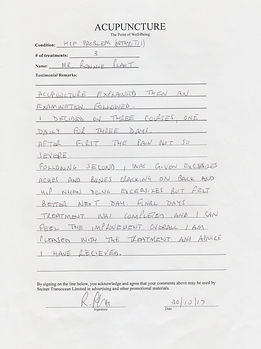 ACUPUNCTURE
The Point of Well-Being
Condition: HIP PROBLEM (ARTHRITIS)
# of treatments: 3
Name: MR. RONNIE PLANT
Testimonial Remarks:
ACUPUNCTURE EXPLAINED THEN AN
EXAMINATION FOLLOWED.
I DECIDED ON THREE COURSES, ONE
DAILY FOR THREE DAYS.
AFTER FIRST THE PAIN NOT SO
SEVERE.
FOLLOWING SECOND I WAS GIVEN EXCERIZES
ACHES AND BONES CRACKING ON BACK AND
HIP WHEN DOING EXCERIZES BUT FELT
BETTER NEXT DAY. FINAL DAYS
TREATMENT WAS COMPLETED AND I CAN
FEEL THE IMPROVEMENT OVERALL. I AM
PLEASED WITH THE TREATMENT AND ADVICE
I HAVE RECIEVED.
By signing on the line below, you acknowledge and agree that your comments above may be used by
Steiner Transocean Limited in advertising and other promotional materials.
Signature
Date
30/10/17